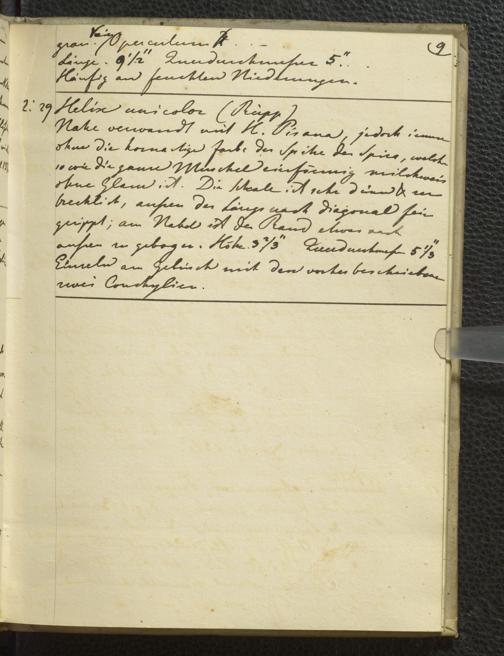 9
grau. Kein Operculum
Länge. 9 1/2''' Querdurchmesser 5'''.
Häufig an feuchten Niedrungen.
2: 29 Helix unicolor (Rüpp)
Nahe verwandt mit H. Pisana, jedoch immer
ohne die hornartige farbe der Spitze der Spira, welche
so wie die ganze Muschel einförmig milchweis
ohne Glanz ist. Die Schale ist sehr dünn & zer
brechlich, aussen der Länge nach diagonal fein
gerippt; am Nabel ist der Rand etwas nach
aussen umgebogen. Höhe. 3 2/3''' Querdurchmesser 5 1/3'''
Einzeln am Gebüsch mit den vorher beschriebenen
zwei Conchylien.